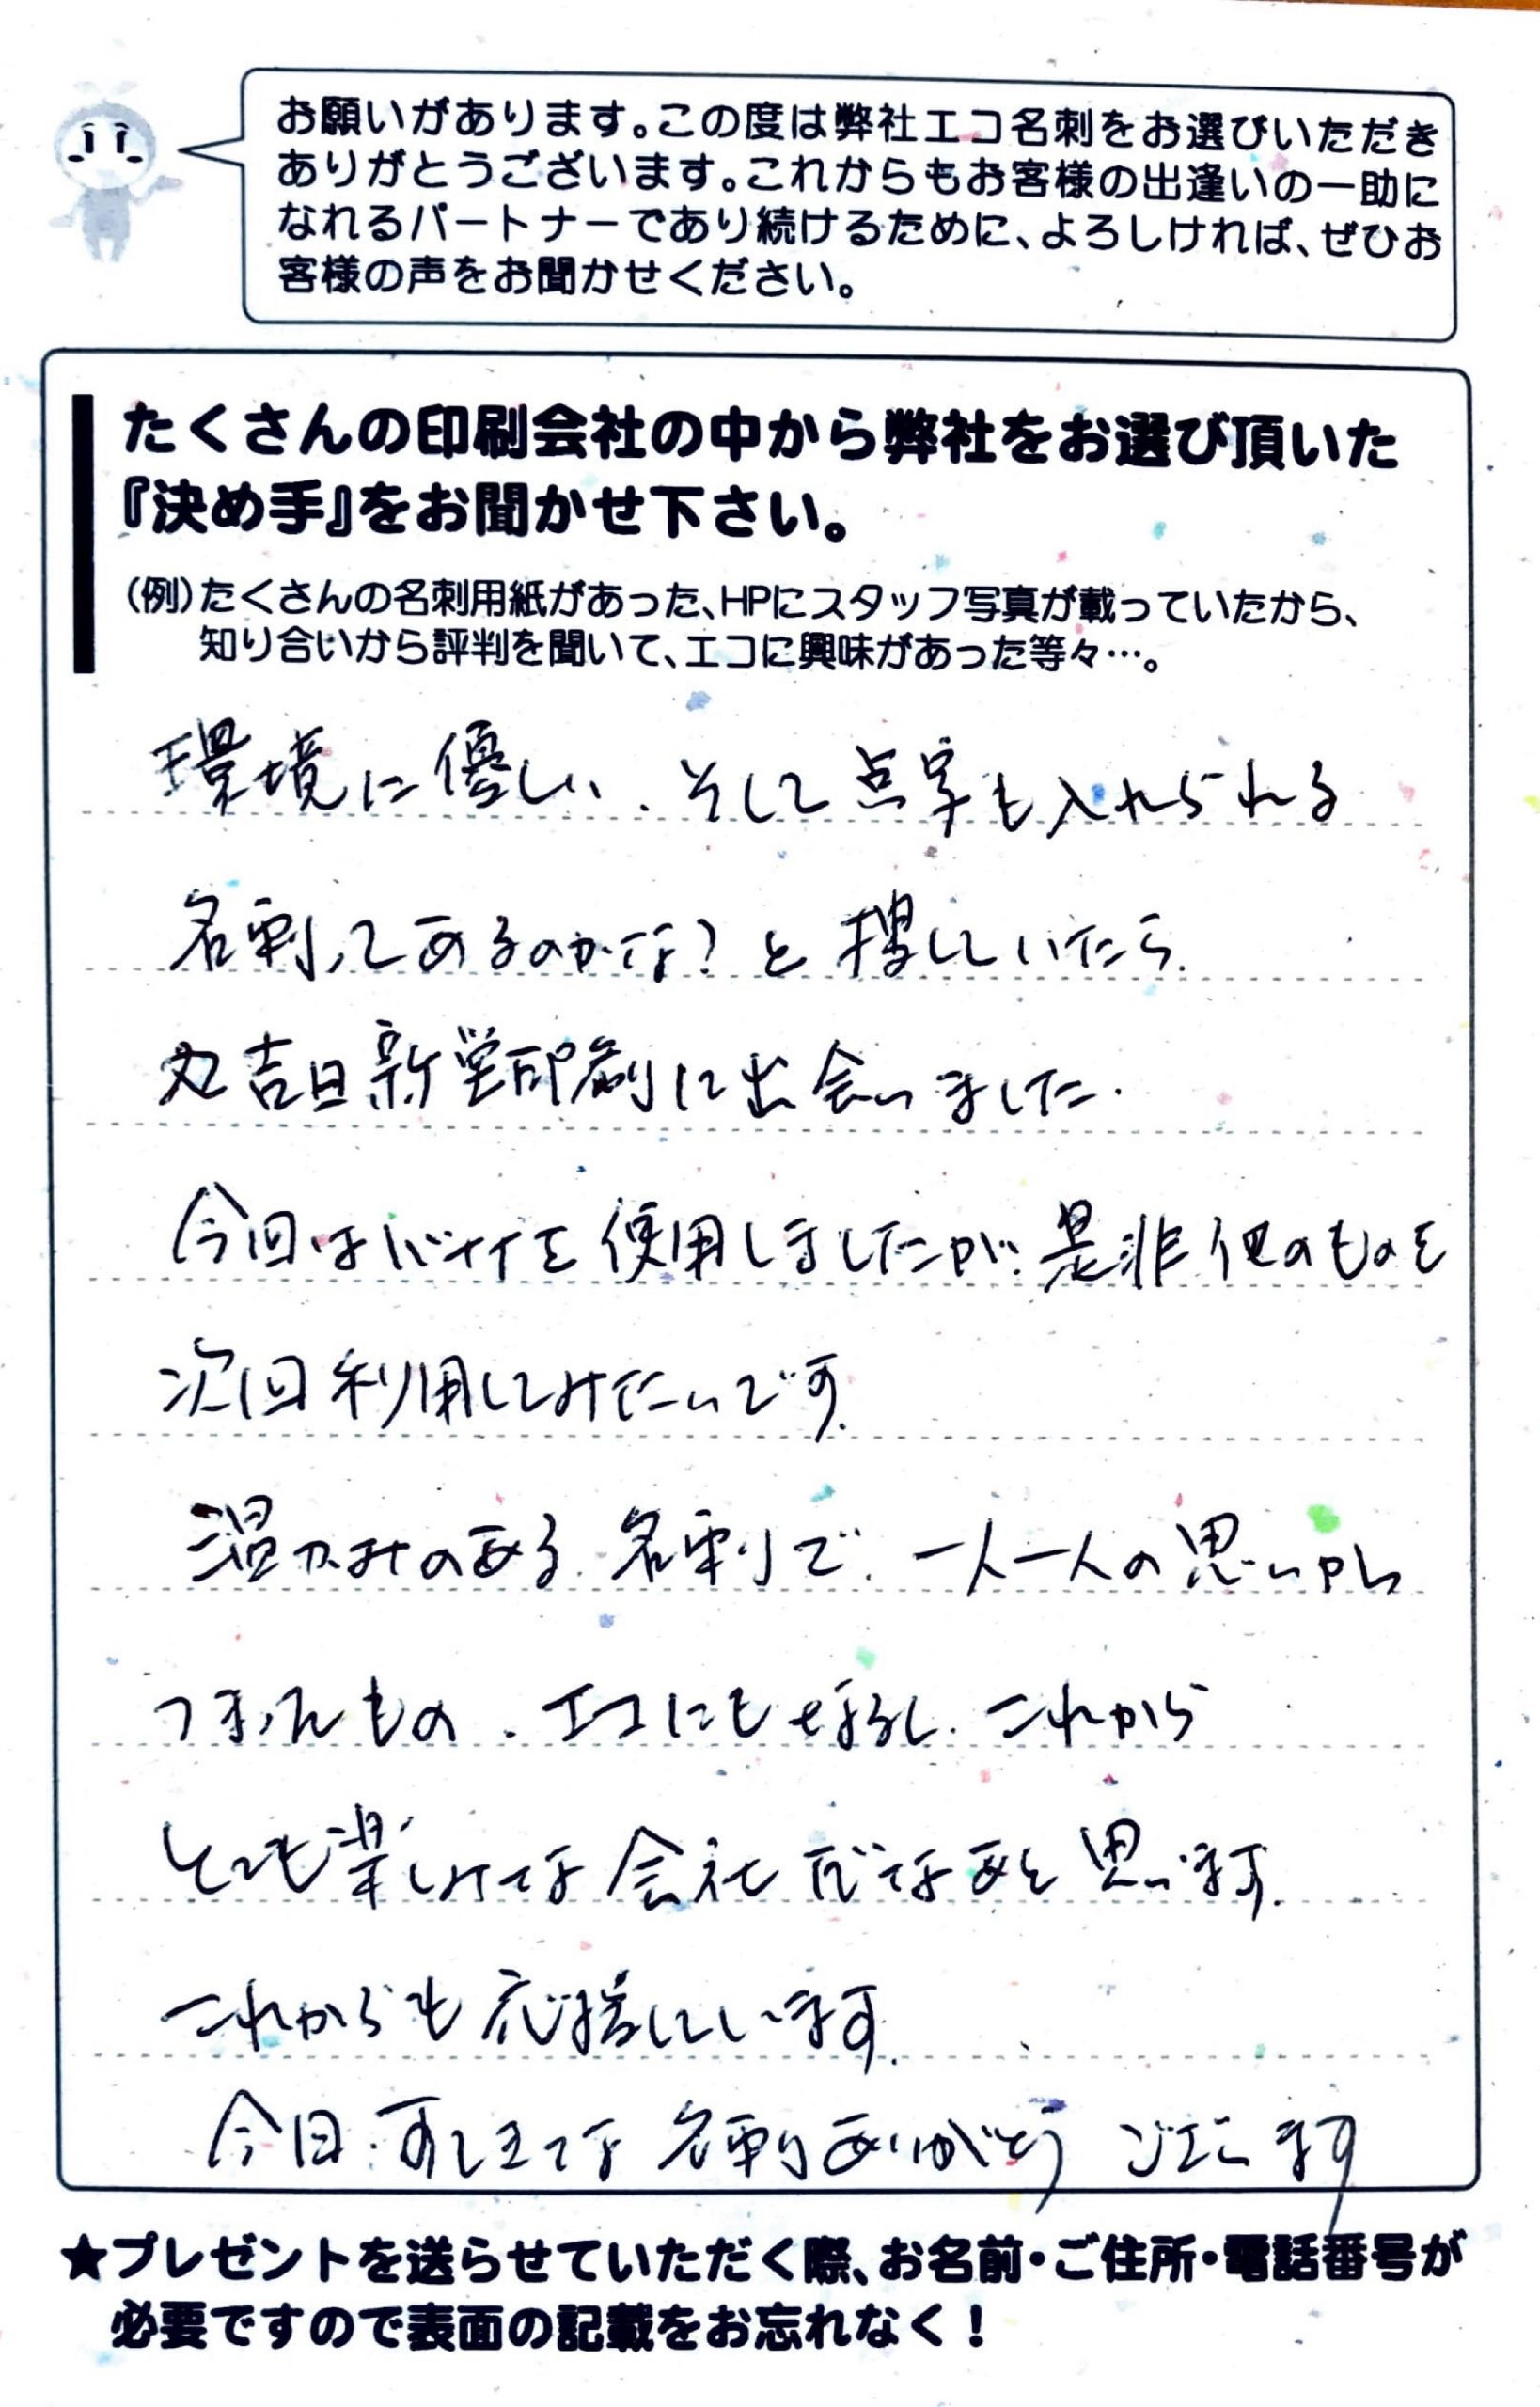 お願いがあります。この度は弊社エコ名刺をお選びいただき
ありがとうございます。これからもお客様の出逢いの一助に
なれるパートナーであり続けるために、よろしければ、ぜひお
客様の声をお聞かせください。
たくさんの印刷会社の中から弊社をお選び頂いた
『決め手』をお聞かせ下さい。
(例)たくさんの名刺用紙があった、HPにスタッフ写真が載っていたから、
知り合いから評判を聞いて、エコに興味があった等々…。
環境に優しい、そして点字も入れられる
名刺ってあるのかな?と捜していたら、
丸吉日新堂印刷に出会いました.
今回はバナナを使用しましたが、是非他のものを
次回利用してみたいです.
温かみのある名刺で、一人一人の思いが
つまったもの、エコにもなるし、これから
とても楽しみな会社だなあと思います.
これからも応援しています.
今日、すてきな名刺ありがとうございます
★プレゼントを送らせていただく際、お名前・ご住所・電話番号が
必要ですので表面の記載をお忘れなく!